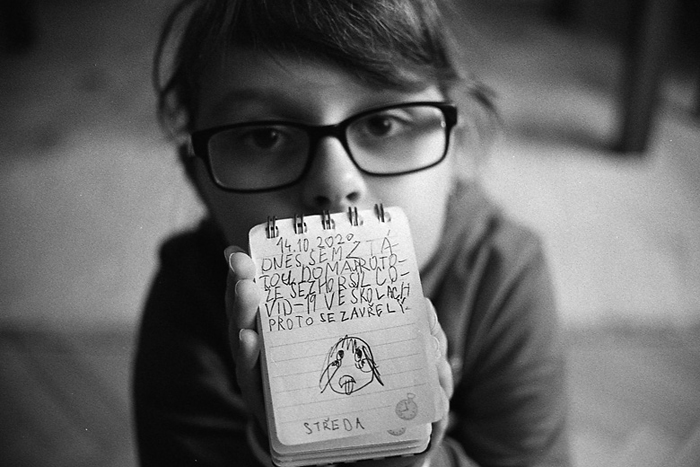 14.10.2020
DNES SEM ZTÁ-
TOU DOMA PROTO
ŽE SE ZHORSIL CO-
VID-19 VE ŠKOLACH
PROTO SE ZAVŘELY.
STŘEDA